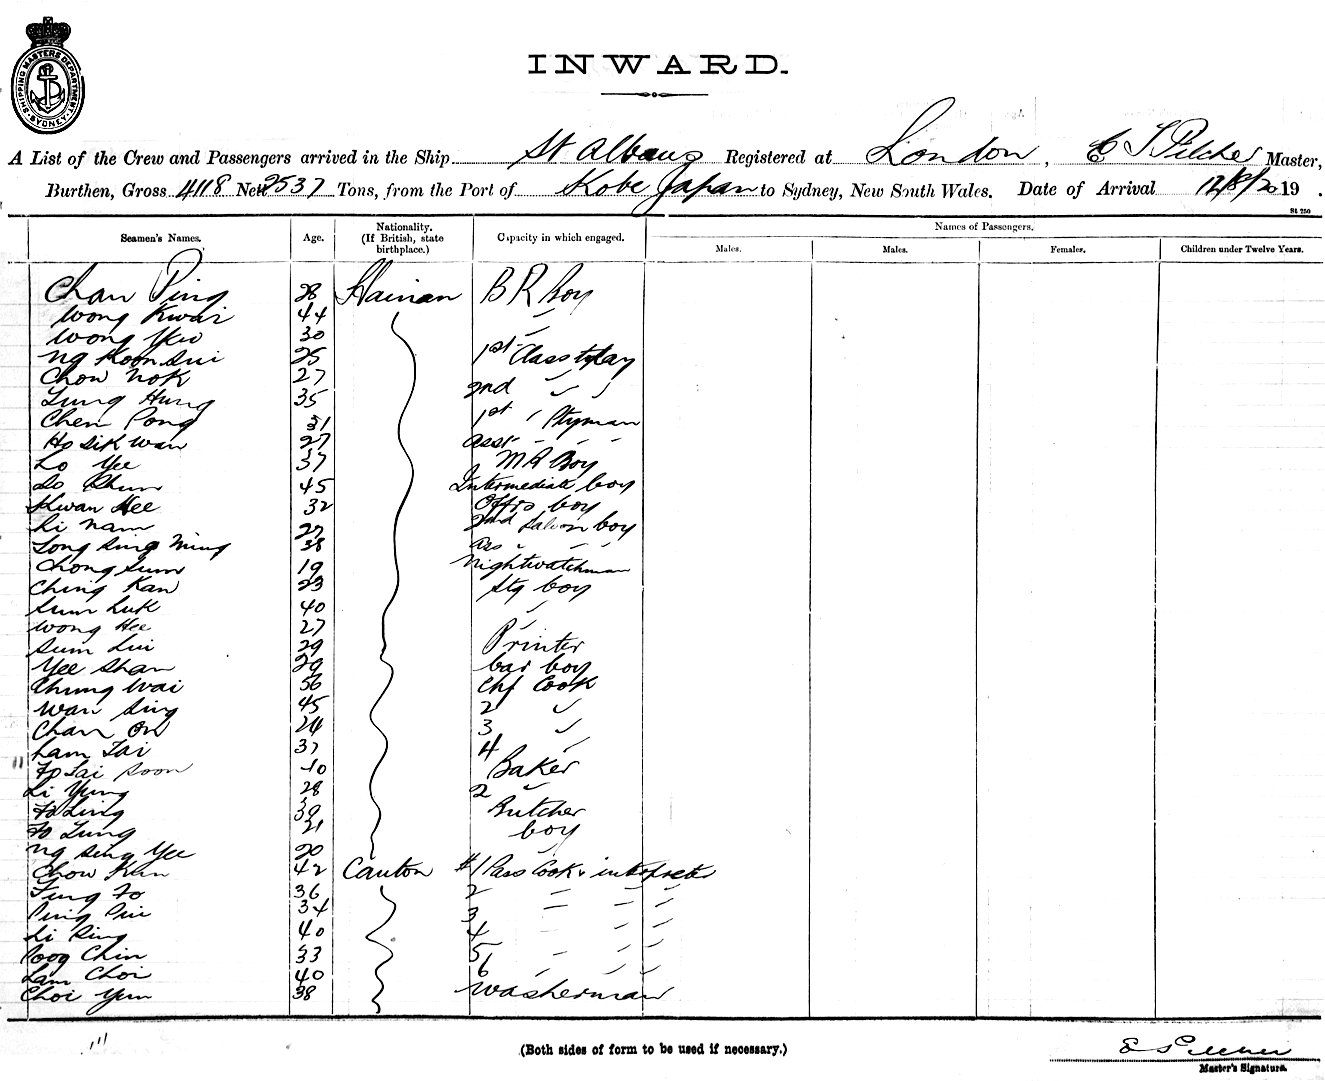 SHIPPING MASTERS DEPARTMENT
SYDNEY
INWARD.
A List of the Crew and Passengers arrived in the Ship St Albans Registered at London, E T Pilcher Master,
Burthen, Gross 4118 Nett 2537 Tons, from the Port of Kobe Japan to Sydney, New South Wales. Date of Arrival 12/8/20 19 .
St 250
Seamen's Names. Age. Nationality. (If British, state birthplace.) Capacity in which engaged. Names of Passengers.
Males. Males. Females. Children under Twelve Years.
Chan Ping 28 Hainan B R Boy
Wong Kwai 44 "
Wong Yew 30 "
Ng Koon Sui 25 1st Class
Chow Nok 27 2nd " "
Lung Hung 35
Chen Pong 31 1st " Ptyman
Ho Sik Wan 27 asst " " "
Lo Yee 37 M R Boy
45 Intermediate boy
Kwan Hee 32 Offrs boy
Li Nam 27 2nd Saloon boy
Long Sing Ming 38 " "
Chong Sum 19 Nightwatchman
Ching Kan 23 Stg boy
Sum Luk 40 "
Wong Hee 27 "
Sum Lui 29 Printer
Yee Shan 29 bar boy
Chung Wai 56 Chf Cook
Wan Sing 45 2 "
Chan On 24 3 "
Lam Tai 37 4 "
Fo Tai Soon 40 Baker
Li Yung 28 2 "
Fo Ling 39 Butcher
Fo Lung 21 boy
Ng Sing Yee 20 "
Chow Kan 42 Canton #1 Pass Cook & interpreter
Fung Fo 36 2 " " "
34 3 " " "
Li Sing 40 4 " " "
Chin 33 5 " " "
Lam Choi 40 6 " " "
Choi Yun 38 Washerman
(Both sides of form to be used if necessary.)
E T Pilcher
Master's Signature.